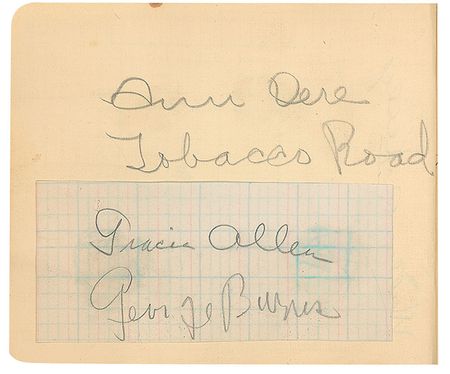 Ann Dere
Tobacco Road
Gracie Allen
George Burns